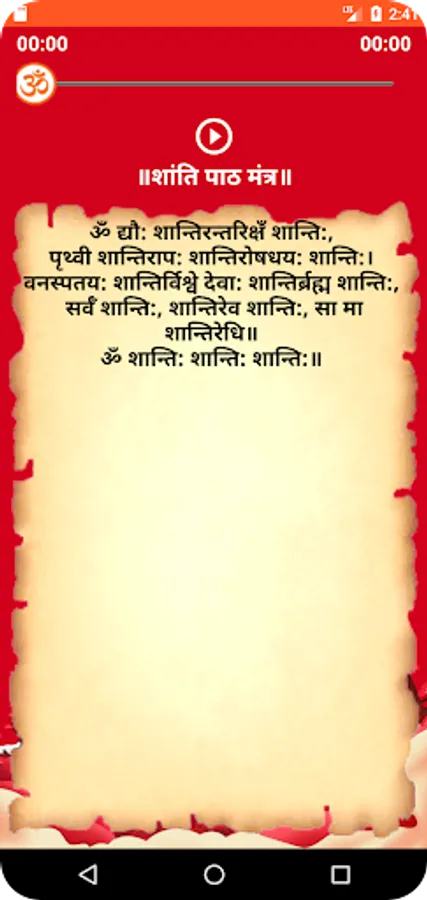 2:41
00:00 00:00
ॐ
॥शांति पाठ मंत्र॥
ॐ द्यौ: शान्तिरन्तरिक्षँ शान्ति:,
पृथ्वी शान्तिराप: शान्तिरोषधय: शान्ति:।
वनस्पतय: शान्तिर्विश्वे देवा: शान्तिर्ब्रह्म शान्ति:,
सर्वँ शान्ति:, शान्तिरेव शान्ति:, सा मा
शान्तिरेधि॥
ॐ शान्ति: शान्ति: शान्ति:॥